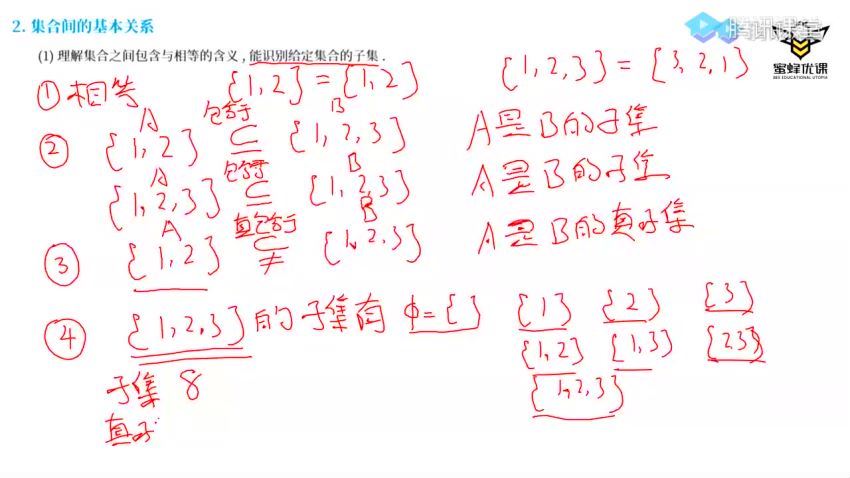 2. 集合间的基本关系
腾讯课堂
(1) 理解集合之间包含与相等的含义，能识别给定集合的子集.
蜜蜂优课
BEE EDUCATIONAL UTOPIA
① 相等 {1,2}={1,2} {1,2,3}={3,2,1}
A 包含于 B
② {1,2} ⊆ {1,2,3} A是B的子集
A 包含于 B
{1,2,3} ⊆ {1,2,3} A是B的子集
A 真包含于 B
③ {1,2} ⊊ {1,2,3} A是B的真子集
④ {1,2,3}的子集有 φ={} {1} {2} {3}
{1,2} {1,3} {23}
{1,2,3}
子集 8
真子